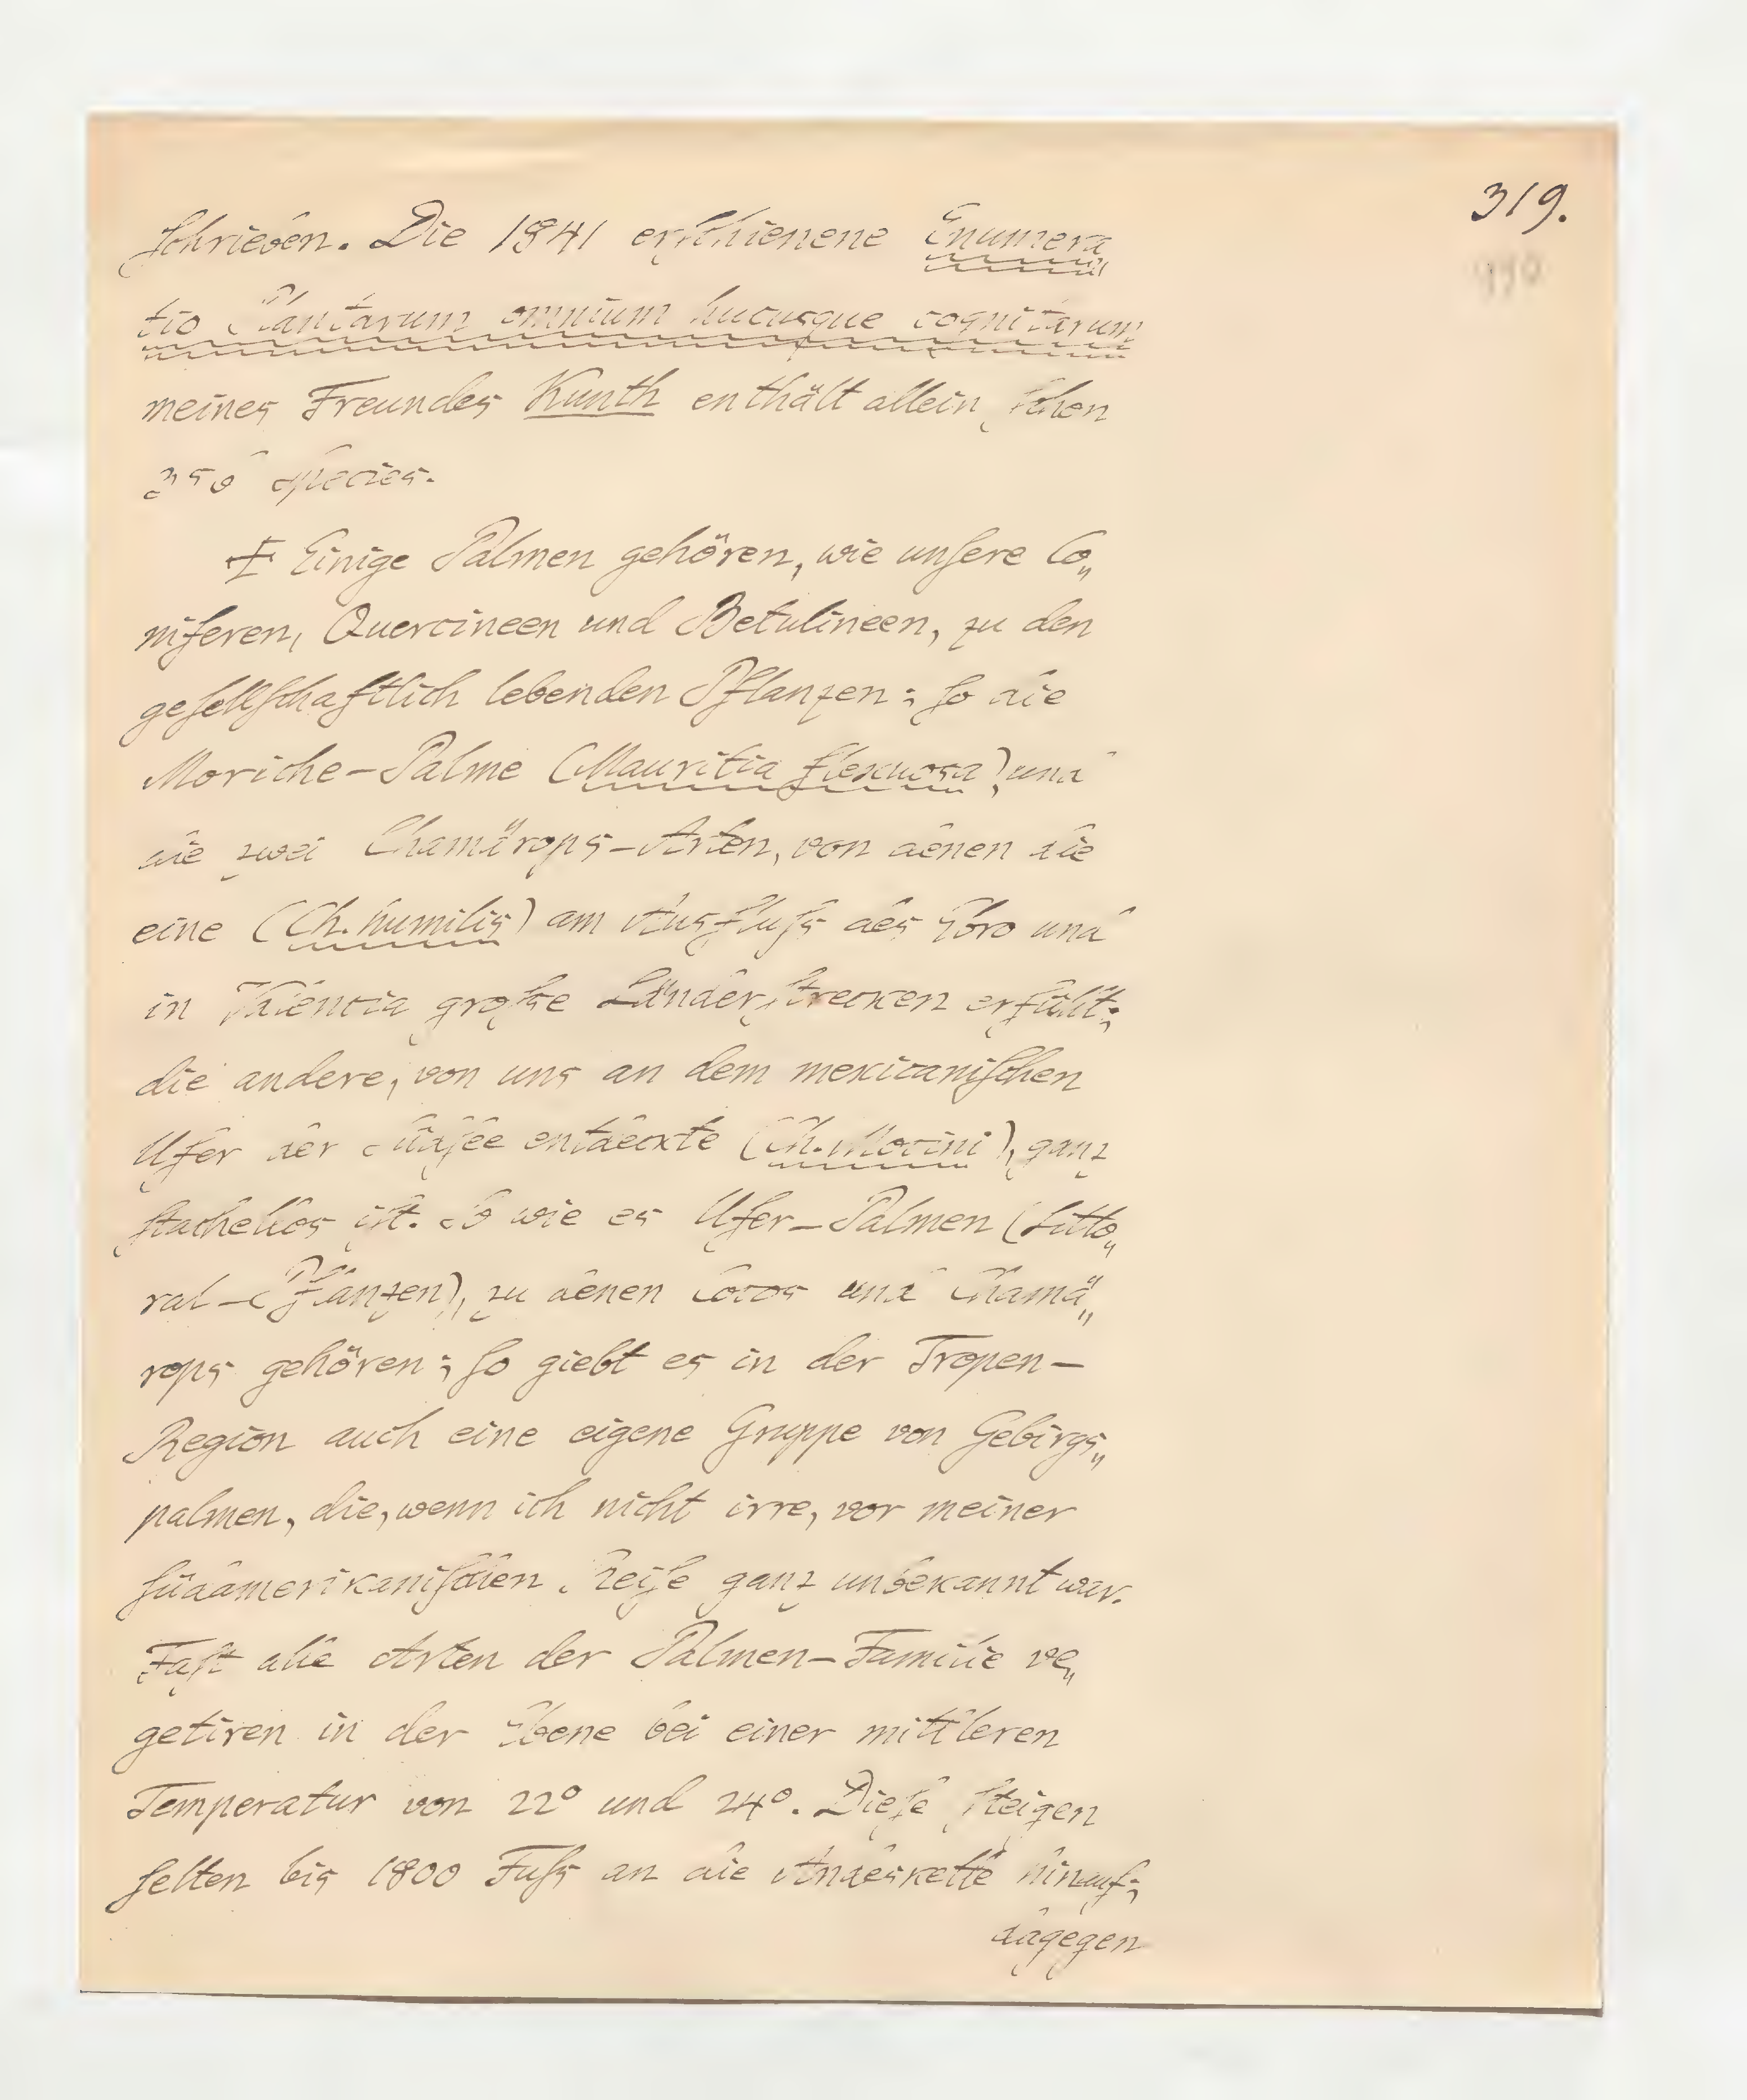 319.
schrieben. Die 1841 erschienene Enumera
tio Plantarum omnium hucusque cognitarum
meines Freundes Kunth enthält allein schon
356 Species.
Einige Palmen gehören, wie unsere Co„
niferen, Quercineen und Betulineen, zu den
gesellschaftlich lebenden Pflanzen; so die
Moriche-Palme (Mauritia flexuosa), und
die zwei Chamärops-Arten, von denen die
eine (Ch. humilis) am Ausfluss des Ebro und
in Valencia grosse Länderstrecken erfüllt;
die andere, von uns an dem mexicanischen
Ufer der Südsee entdeckte (Ch. Mocini), ganz
stachellos ist. So wie es Ufer-Palmen (Litto„
ral-Pflanzen), zu denen Cocos und Chamä„
rops gehören; so giebt es in der Tropen-
Region auch eine eigene Gruppe von Gebirgs„
palmen, die, wenn ich nicht irre, vor meiner
südamerikanischen Reise ganz unbekannt war.
Fast alle Arten der Palmen-Familie ve„
getiren in der Ebene bei einer mittleren
Temperatur von 22° und 24°. Diese steigen
selten bis 1800 Fuss an die Andeskette hinauf;
dagegen